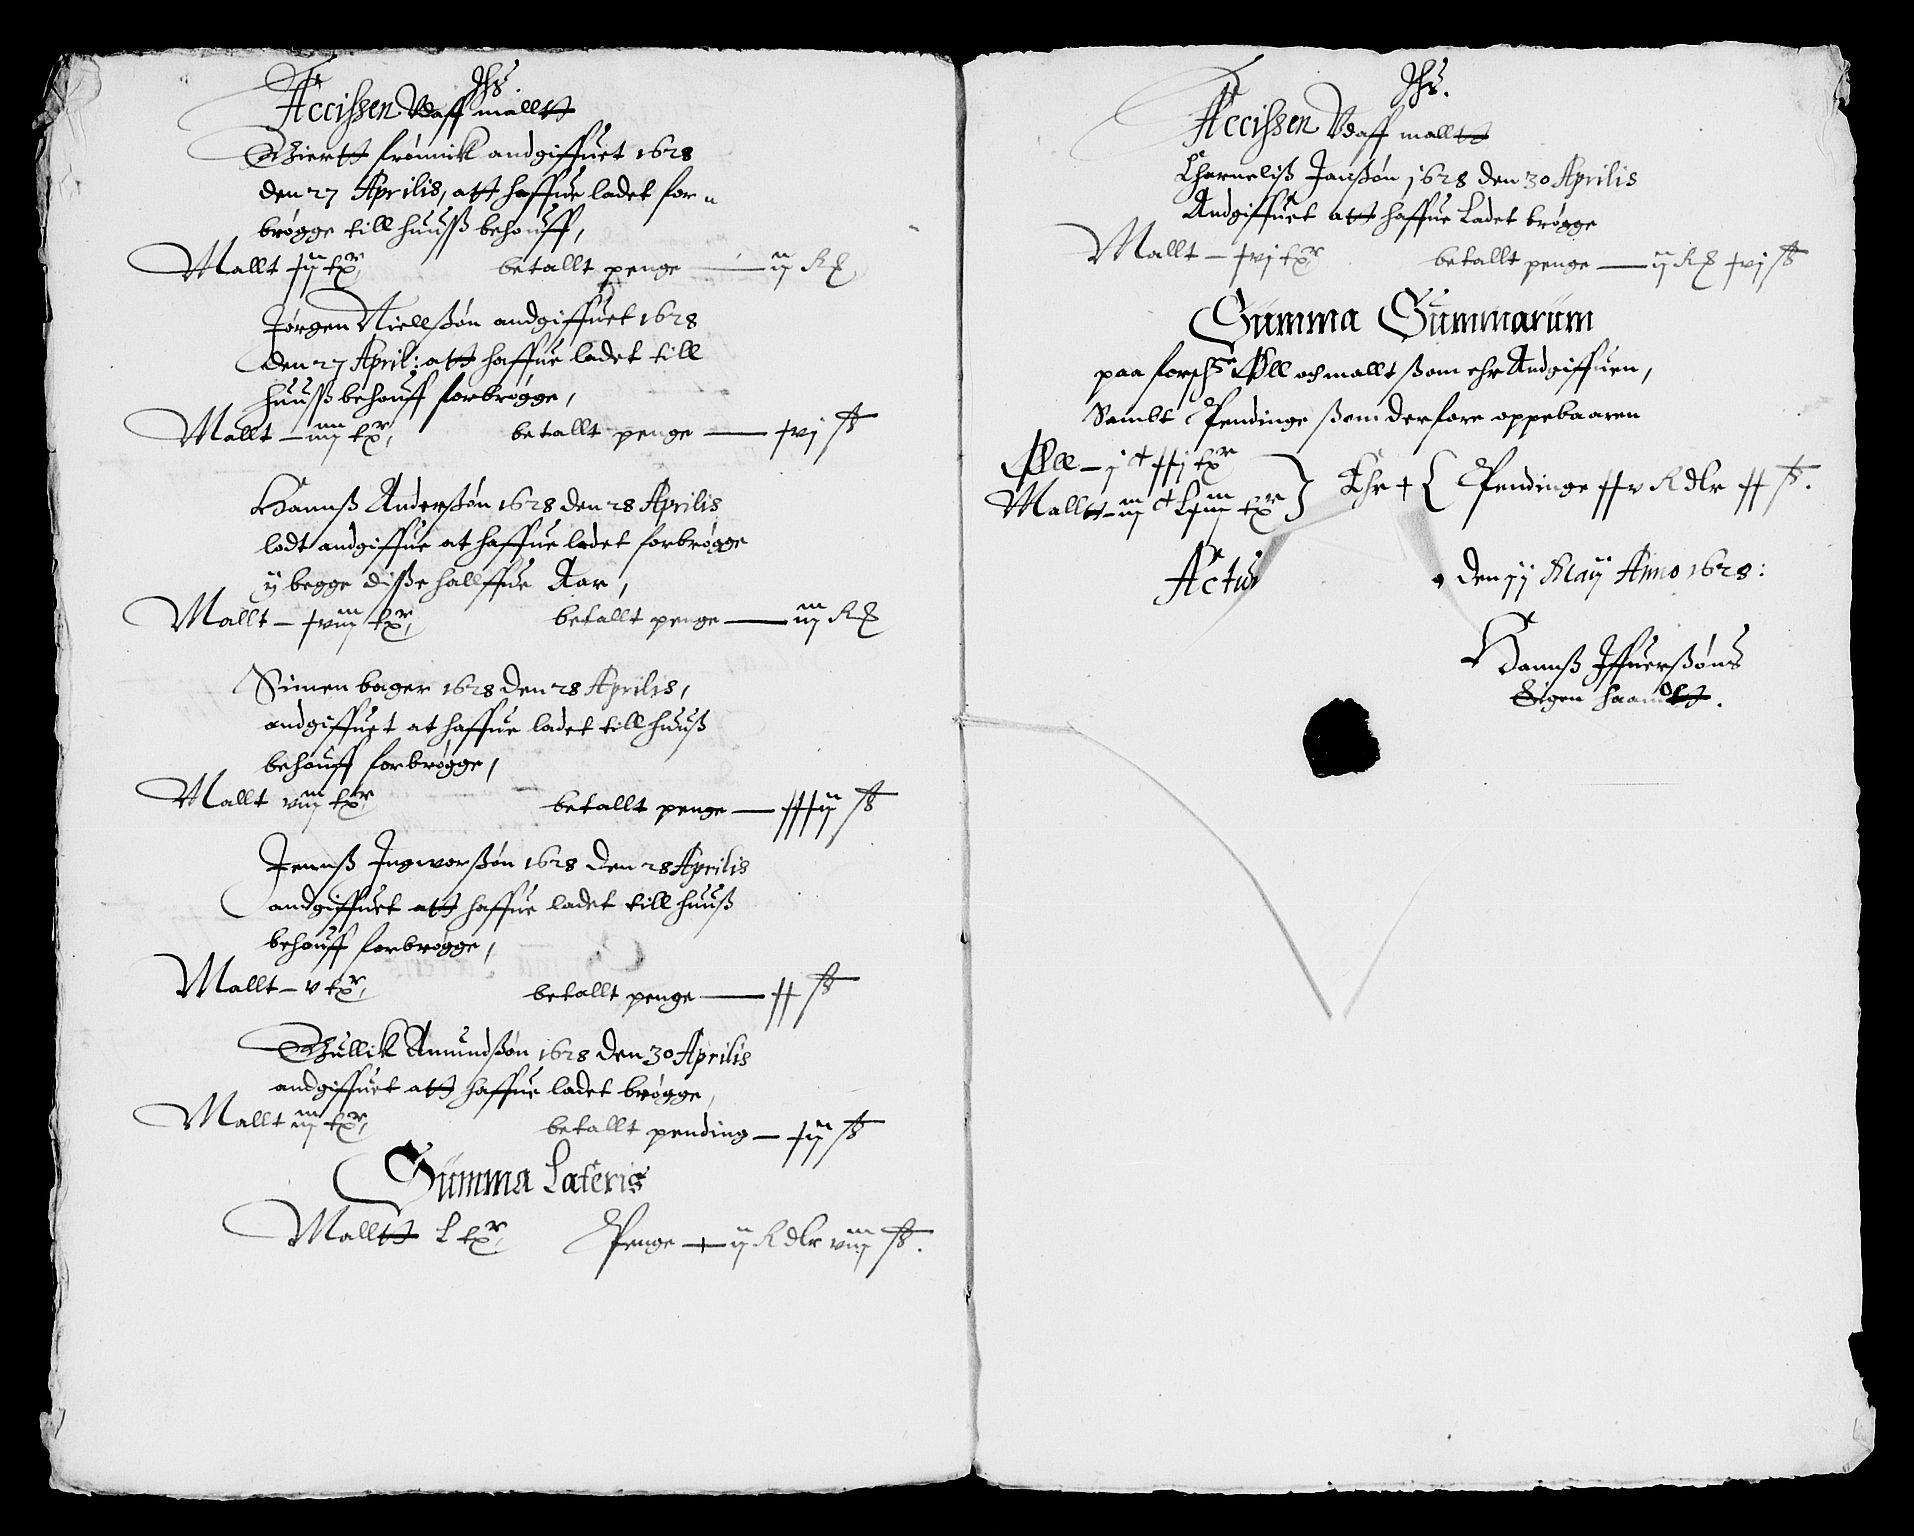 Ihs.
Accissen Vdaff malltt
Giertt frønnik andgiffuet 1628
den 27 Aprilis, att haffue ladet for„
brøgge till huuß behouff,
Mallt xij tr betallt penge — ij R
Jørgen Niellßøn andgiffuet 1628
den 27 April: att haffue ladet till
huuß behouff forbrøgge,
Mallt — iiij tr, betallt penge — xvj ß
Hannß Anderßøn 1628 den 28 Aprilis
lodt andgiffue at haffue ladet forbrøgge
ij begge disße hallffue Aar,
Mallt — xviij tr, betallt penge — iij R
Simen bager 1628 den 28 Aprilis,
andgiffuet at haffue ladet till huuß
behouff forbrøgge,
Mallt viij tr betallt penge — xxxij ß
Jennß Ingworßøn 1628 den 28 Aprilis
andgiffuet att haffue ladet till huuß
behouff forbrøgge,
Mallt — v tr, betallt penge — xx ß
Gullik Amundßøn 1628 den 30 Aprilis
andgiffuet att haffue ladet brøgge,
Mallt iij tr, betallt pending — xij ß
Summa Lateris
Malltt L tr, Penge — ij Rdlr viij ß.
Ihs.
Accissen Vdaff malltt
Charneliß Janßøn 1628 den 30 Aprilis
Andgiffuet att haffue Ladet brøgge
Mallt — xvj tr betallt penge — ij R xvj ß
Summa Summarum
paa forsch: Øll och mallt ßom ehr Andgiffuen,
Sambt Pendinge ßom derfore oppebaaren
Øll — j c xxj tr
Malltt — iij c Lxiij tr } Ehr { Pendinge xxv Rdlr xx ß.
Actu den 11 Maij Anno 1628:
Hannß Iffuerßøns
Eigen haandtt.